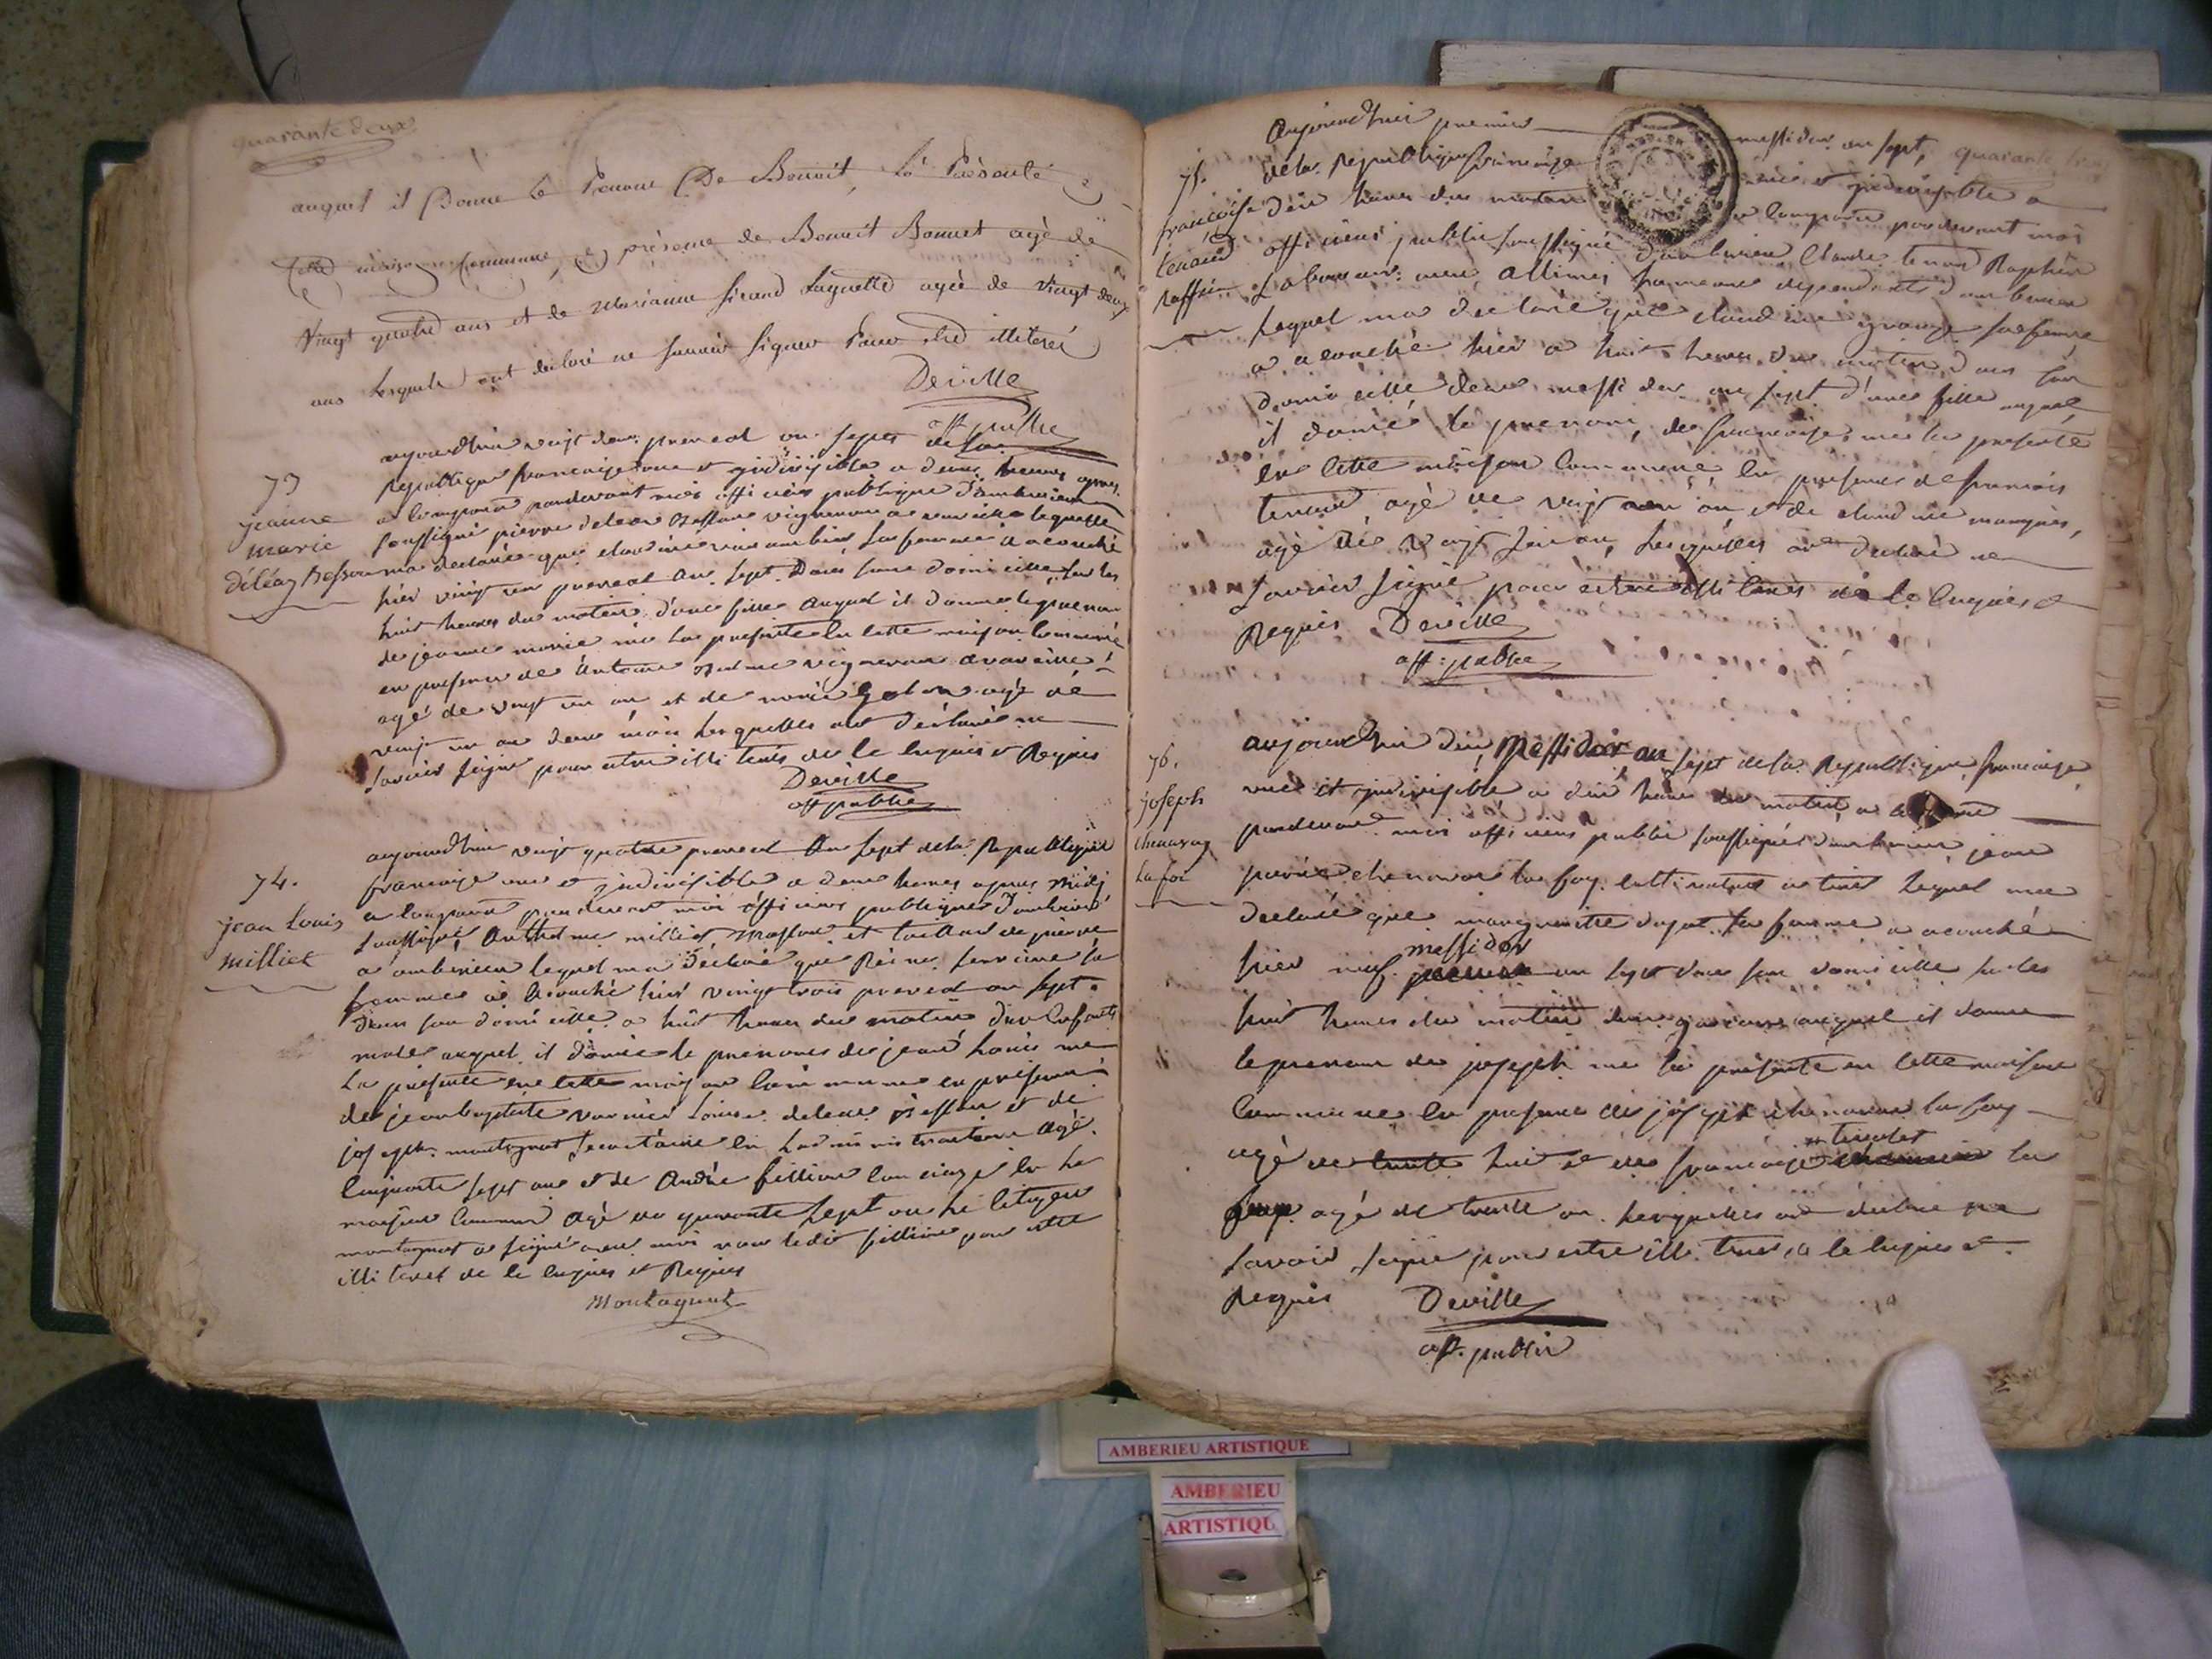 quarante deux
auquel il Donne le Prenom De Benoit, la Présenté
Cette maison Commune, en présence de Benoit Bonnet agé de
Vingt quatre ans et de Marianne Sirand Luquette agée de Vingt deux
ans Lesquels ont declaré ne Savoir Signer Pour etre illiterés
Deville
off publie
73
jeanne
marie
déléaz Besson
aujourdhui vingt deux prereal an sept de la
Republique francaise une et jndivisible a deux heures apres
a Comparu pardevant moi officiers publique d'ambrieux
soussigné pierre deleaz Besson vigneron a vareille lequelle
ma declarée que claudine sa femme a acouché
hier vingt un prereal an sept Dans sone domicille sur les
huit heures du matein d'une fille auquel il donne le prenom
de jeanne marie me la presente En cette maison Commune
en presence de Antoine vigneron a vareille
agé de vingt un an et de marie agé de
vingt un an deux mois Lesquelles ont déclarée ne
savoir signe pour etre illi terés de le enquis et Requis
Deville
off publie
74.
jean Louis
Milliet
aujourdhui vingt quatre prereal An sept de la Republique
francaise une et jndivisible a deux heures apres Midj
a Comparu pardevant moi officiers publiques d'ambrieux
soussigné, Anthelme milliet Masson et tailleur de pierre
a ambrieux lequel ma Déclaré que Reine sa
femme a acouché hier vingt trois prereal an sept
dans son domicille a huit heures du matin d'un Enfants
males auquel il donne le prenoms de jean Louis me
La presente en cette maison Commune en présence
de jean baptiste et de
joseph montagnat Secretaire En Ladministrations agé
Cinquante sept ans et de André fillion Conciege En La
maison Commune agé de quarante sept an Le Citoyen
montagnat a signé avec moi non ledit fillion pour etre
illi teret de le enquis et Requis
Montagnat
quarante trois
75.
francoise
tenand
raffin
Aujourdhui premier messidor an sept,
de la Republique francaise une et jndivisible a
dix heures du matin a Comparu pardevant moi
officiers publie soussigné d'ambrieux Claude tenand Raphin
Laboureur aux Allimes hameaux dependants d'ambrieux
Lequel ma declaré que claudine grange sa femme
a acouché hier a huit heures du matin dans son
domicille deux messidor an sept d'une fille auquel
il donné le prenom, de francoise me la presente
en cette maison Commune, en presence de francois
tenand agé de vingt un an et de claudine
agé de vingt six an, Lesquelles ont declaré ne
savoir signé pour etre illi terés de le enquis et
Requis Deville
off: publie
76.
joseph
chenavaz
Lafoi
aujourdhui dix Messidor an sept de la Republique francaise
une et jndivisible a dix heures du matin a Comparu
pardevant moi officiers publie soussignés d'ambrieux jean
pierre chenavaz lafoy Cultivateur a tiret lequel ma
declaré que marguerite dupat sa femme a acouché
hier neuf messidor an sept dans son domicille sur les
huit heures du matin d'un garcons auquel il donne
le prenom de joseph me la présente en cette maison
Commune en presence de joseph chenavaz lafoy
agé de trente huit et de francoise tenand la
agé de trente an Lesquelles ont declaré ne
savoir signé pour estre illi teres de le enquis et
Requis Deville
off. publie
AMBERIEU ARTISTIQUE
AMBERIEU
ARTISTIQU